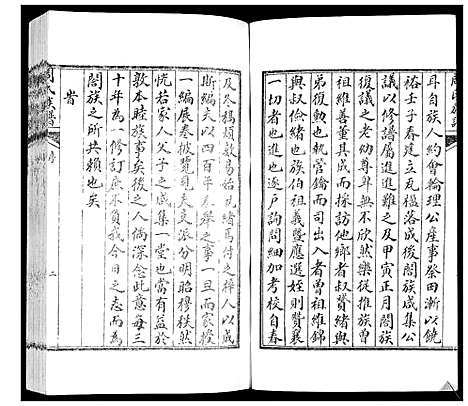 耳自族人約會輪理公產事祭田漸以饒
裕壬子春建立瓦楹落成後閤族咸集公
議以修譜屬進難之及甲寅正月閤族
復議之老幼尊卑無不欣然樂從推族曾
祖維善董其成而採訪他鄉者叔贊緒與
弟復勳也執管鑰而司出入者曾祖維錦
與叔儒寅也族伯祖義暨應選姪則贊襄
一切者也進逐戶詢問細加考校自春
及冬稿頻數易始克緒焉付之梓人以成
斯編夫以四百年未舉之事一旦而家程
一編展卷披覽見夫支派分明昭穆秩然
恍若家人父子之咸集一堂也當有益於
敦本睦族事矣後之人倘深念此意每三
十年為一修訂庶不負我今日之志而為
閤族之所共賴也矣
周氏族譜
二